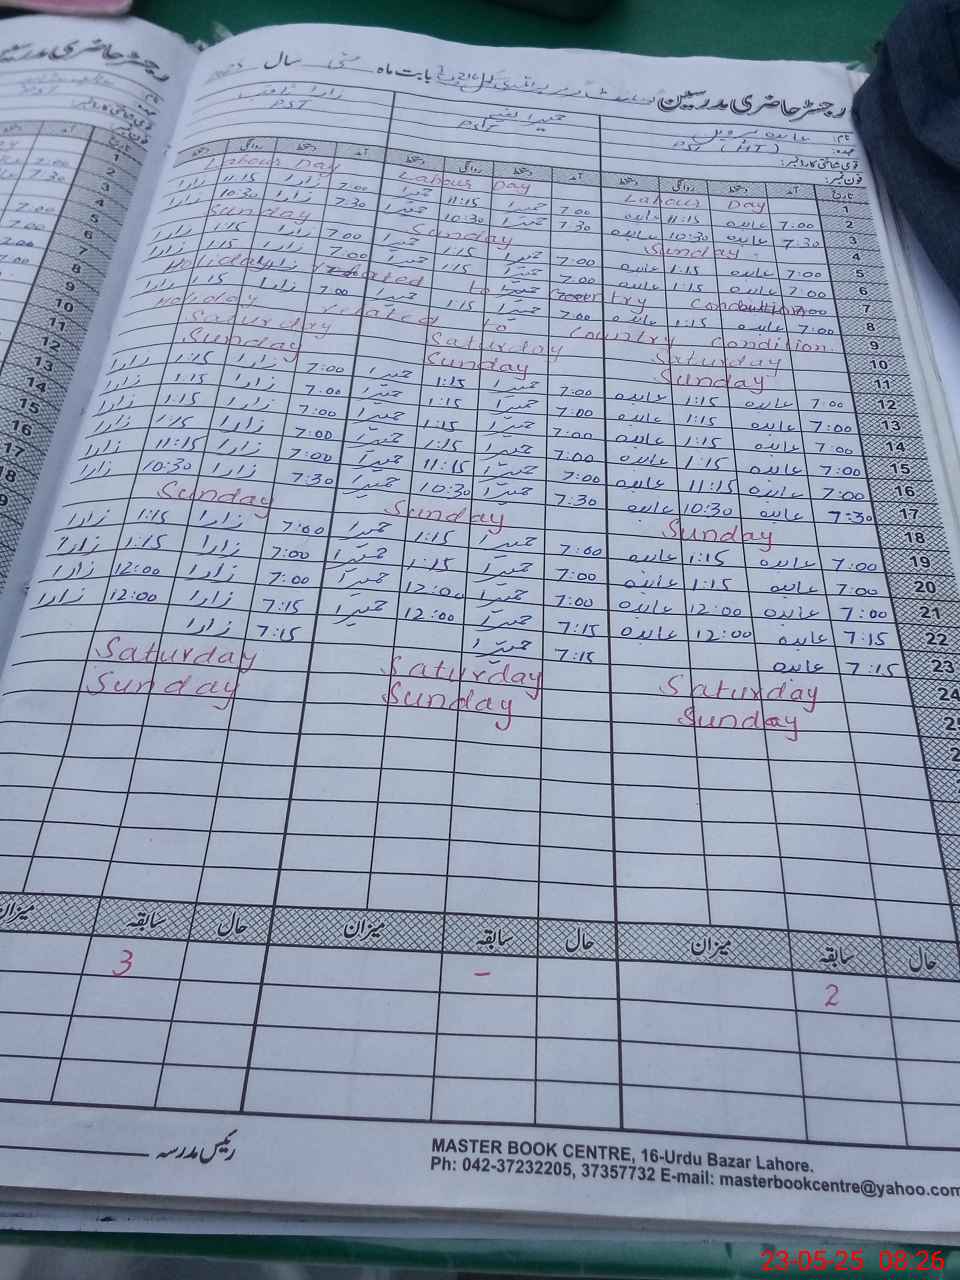 رجسٹر حاضری مدرسین
بابت ماہ مئی سال
نام: عابدہ پروین حمیرا زارا
عہدہ: PST (HT) PST PST
قومی شناختی کارڈ نمبر:
فون نمبر:
تاریخ آمد دستخط روانگی دستخط آمد دستخط روانگی دستخط آمد دستخط روانگی دستخط
1 Labour Day Labour Day Labour Day
2 7:00 عابدہ 11:15 عابدہ 7:00 حمیرا 11:15 حمیرا 7:00 زارا 11:15 زارا
3 7:30 عابدہ 10:30 عابدہ 7:30 حمیرا 10:30 حمیرا 7:30 زارا 10:30 زارا
4 Sunday Sunday Sunday
5 7:00 عابدہ 1:15 عابدہ 7:00 حمیرا 1:15 حمیرا 7:00 زارا 1:15 زارا
6 7:00 عابدہ 1:15 عابدہ 7:00 حمیرا 1:15 حمیرا 7:00 زارا 1:15 زارا
7 Holiday related to Country Condition
8 7:00 عابدہ 1:15 عابدہ 7:00 حمیرا 1:15 حمیرا 7:00 زارا 1:15 زارا
9 Holiday related to Country Condition
10 Saturday Saturday Saturday
11 Sunday Sunday Sunday
12 7:00 عابدہ 1:15 عابدہ 7:00 حمیرا 1:15 حمیرا 7:00 زارا 1:15 زارا
13 7:00 عابدہ 1:15 عابدہ 7:00 حمیرا 1:15 حمیرا 7:00 زارا 1:15 زارا
14 7:00 عابدہ 1:15 عابدہ 7:00 حمیرا 1:15 حمیرا 7:00 زارا 1:15 زارا
15 7:00 عابدہ 1:15 عابدہ 7:00 حمیرا 1:15 حمیرا 7:00 زارا 1:15 زارا
16 7:00 عابدہ 11:15 عابدہ 7:00 حمیرا 11:15 حمیرا 7:00 زارا 11:15 زارا
17 7:30 عابدہ 10:30 عابدہ 7:30 حمیرا 10:30 حمیرا 7:30 زارا 10:30 زارا
18 Sunday Sunday Sunday
19 7:00 عابدہ 1:15 عابدہ 7:00 حمیرا 1:15 حمیرا 7:00 زارا 1:15 زارا
20 7:00 عابدہ 1:15 عابدہ 7:00 حمیرا 1:15 حمیرا 7:00 زارا 1:15 زارا
21 7:00 عابدہ 12:00 عابدہ 7:00 حمیرا 12:00 حمیرا 7:00 زارا 12:00 زارا
22 7:15 عابدہ 12:00 عابدہ 7:15 حمیرا 12:00 حمیرا 7:15 زارا 12:00 زارا
23 7:15 عابدہ 7:15 حمیرا 7:15 زارا
24 Saturday Saturday Saturday
25 Sunday Sunday Sunday
حال سابقہ میزان حال سابقہ میزان حال سابقہ میزان
2 - 3
رئیس مدرسہ
MASTER BOOK CENTRE, 16-Urdu Bazar Lahore.
Ph: 042-37232205, 37357732 E-mail: masterbookcentre@yahoo.com
23-05-25 08:26